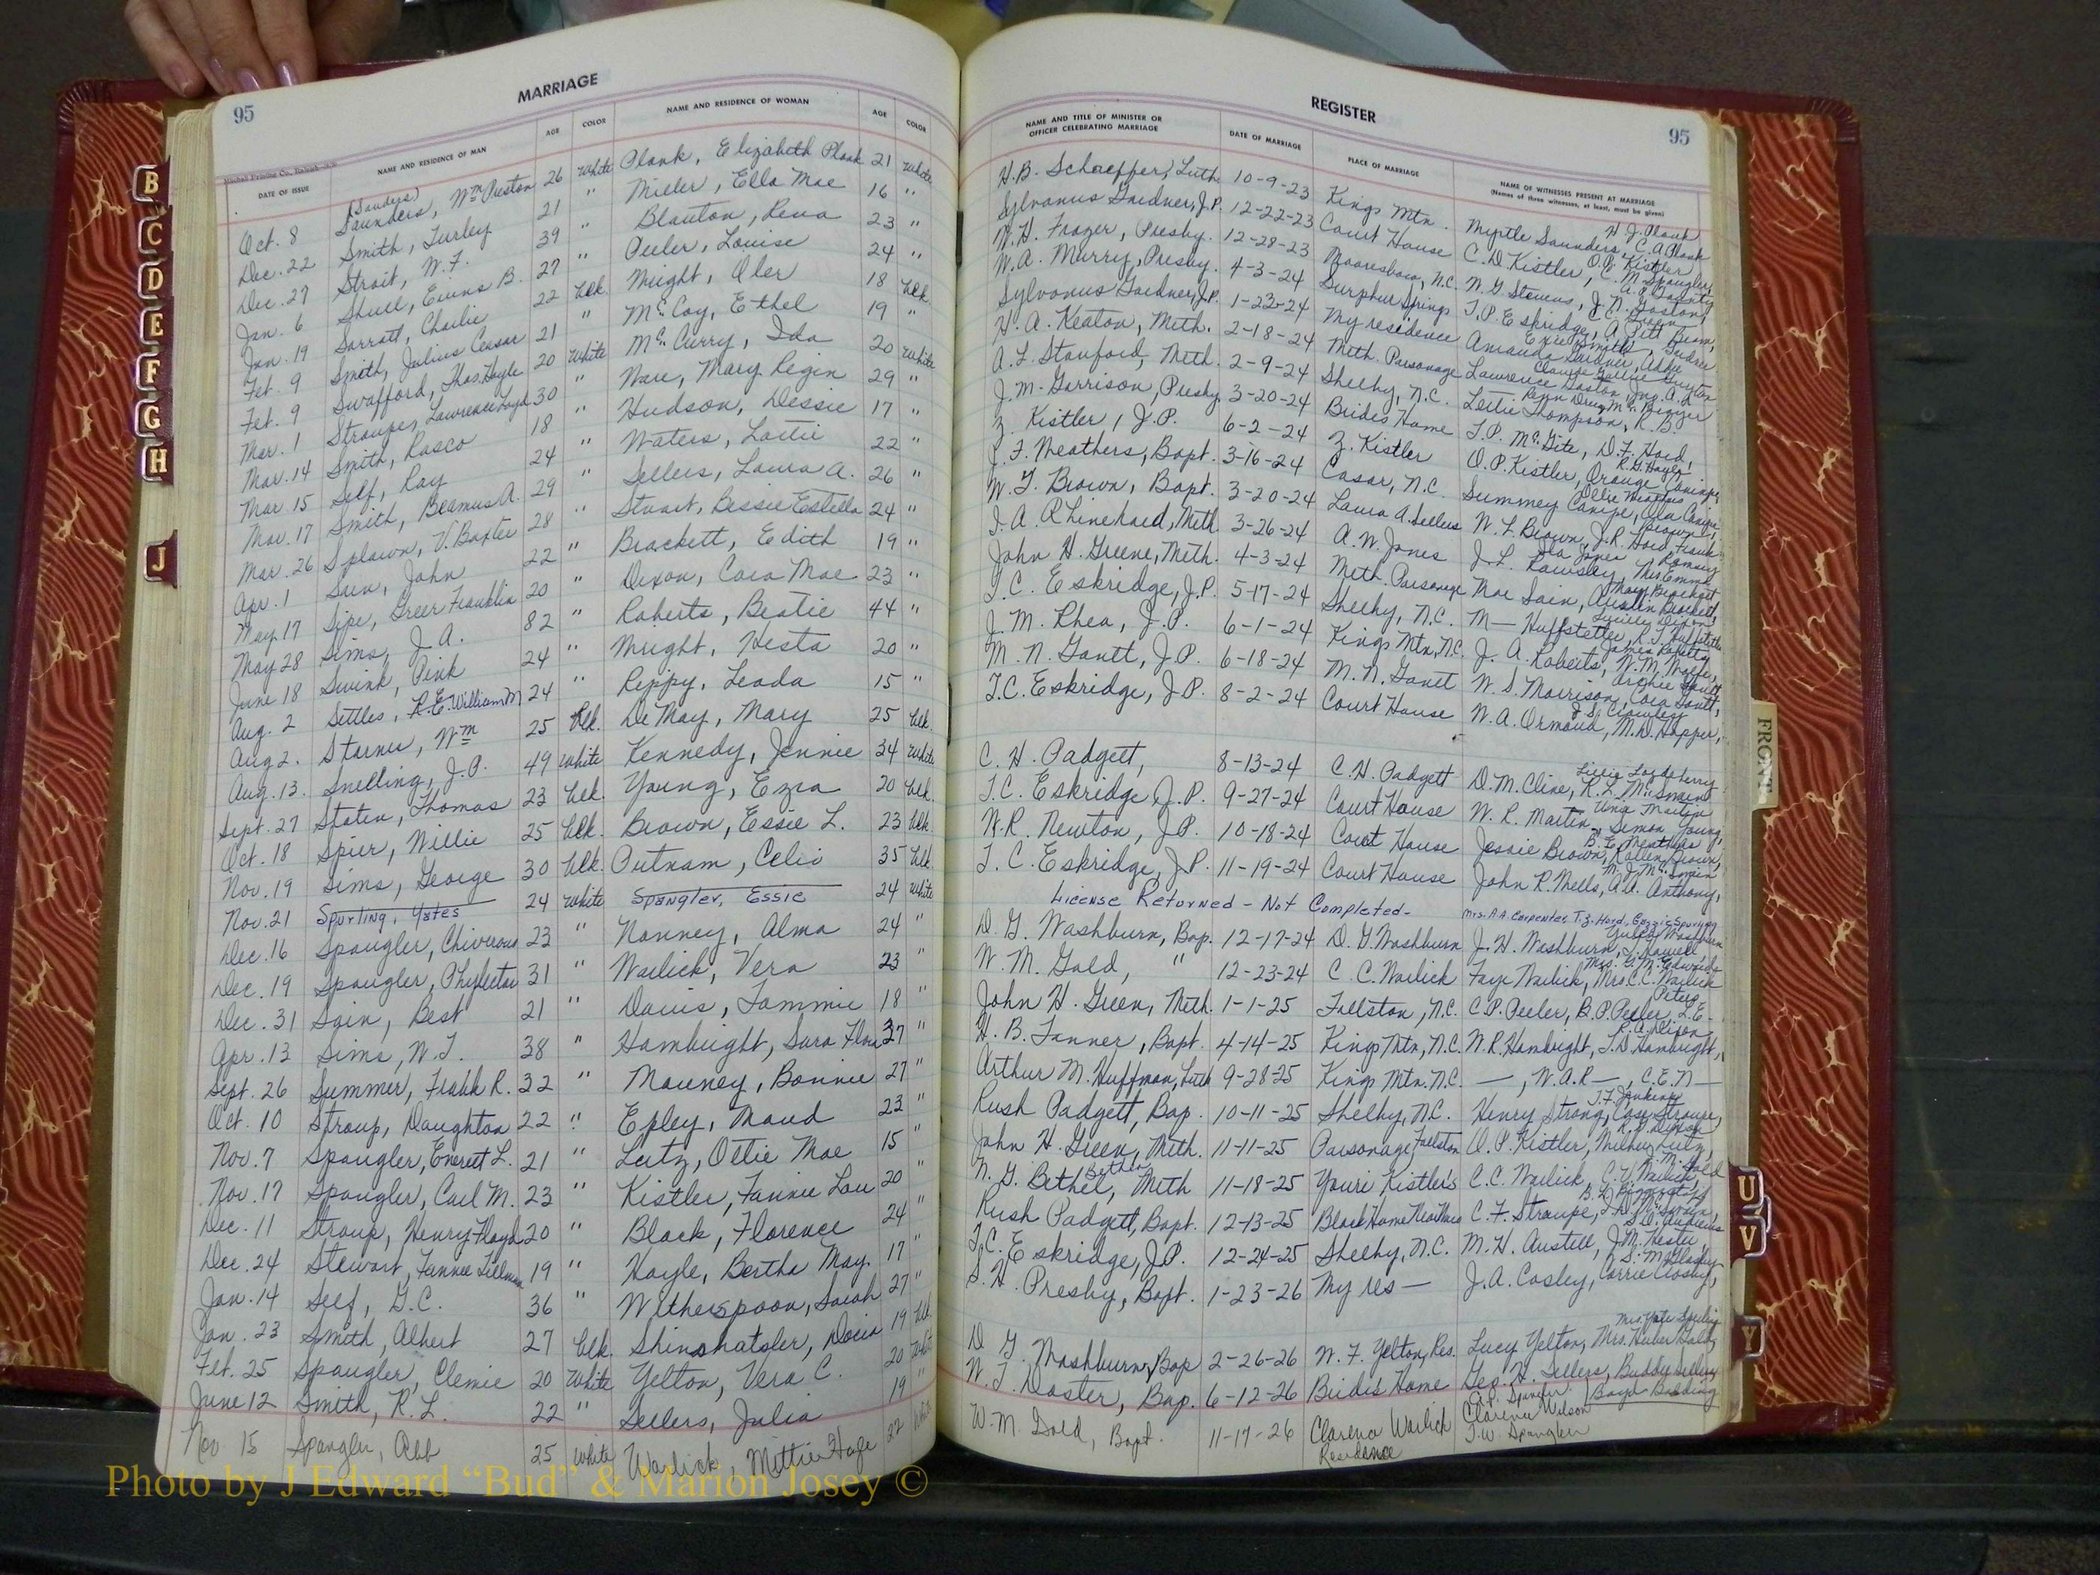 95
MARRIAGE
DATE OF ISSUE NAME AND RESIDENCE OF MAN AGE COLOR NAME AND RESIDENCE OF WOMAN AGE COLOR
(Sandys)
Oct. 8 Saunders, Wm Preston 26 White Plonk, Elizabeth Plonk 21 White
Dec. 22 Smith, Turley 21 " Miller, Ella Mae 16 "
Dec. 27 Strait, W. F. 39 " Blanton, Rena 23 "
Jan. 6 Shull, Evans B. 27 " Peeler, Louise 24 "
Jan. 19 Sarratt, Charlie 22 blk. Wright, Oler 18 blk.
Feb. 9 Smith, Julius Ceasar 21 " McCoy, Ethel 19 "
Feb. 9 Swafford, Thos. Hoyle 20 White McCurry, Ida 20 White
Mar. 1 Stroupe, Lawrence Loyd 30 " Ware, Mary Regin 29 "
Mar. 14 Smith, Rosco 18 " Hudson, Dessie 17 "
Mar 15 Self, Ray 24 " Waters, Lottie 22 "
Mar. 17 Smith, Beamus A. 29 " Sellers, Laura A. 26 "
Mar. 26 Splawn, V. Baxter 28 " Stuart, Bessie Estella 24 "
Apr. 1 John 22 " Brackett, Edith 19 "
May 17 Sipe, Greer Franklin 20 " Dixon, Cora Mae 23 "
May 28 Sims, J. A. 82 " Roberts, Beatie 44 "
June 18 Swink, Pink 24 " Wright, Vesta 20 "
Aug. 2 Settles, R. E. William M 24 " Peppy, Leada 15 "
Aug 2. Starnes, Wm 25 Blk. De May, Mary 25 blk.
Aug. 13. Snelling, J. P. 49 White Kennedy, Jennie 34 White
Sept. 27 Staten, Thomas 23 blk. Young, Ezra 20 blk.
Oct. 18 Spier, Willie 25 blk. Brown, Essie L. 23 blk
Nov. 19 Sims, George 30 blk. Putnam, Celia 35 blk
Nov. 21 Sperling, Yates 24 White Spangler, Essie 24 White
Dec. 16 Spangler, Chiverous 23 " Nanney, Alma 24 "
Dec. 19 Spangler, Philector 31 " Warlick, Vera 23 "
Dec. 31 Sain, Best 21 " Davis, Tommie 18 "
Apr. 13 Sims, W. T. 38 " Hambright, Sara Flora 37 "
Sept. 26 Summer, Frank R. 32 " Mauney, Bonnie 27 "
Oct. 10 Stroup, Daughton 22 " Epley, Maud 23 "
Nov. 7 Spangler, Everett L. 21 " Lutz, Ottie Mae 15 "
Nov. 17 Spangler, Carl M. 23 " Kistler, Fannie Lou 20 "
Dec. 11 Stroup, Henry Floyd 20 " Black, Florence 24 "
Dec. 24 Stewart, Tillman 19 " Hoyle, Bertha May 17 "
Jan. 14 Self, G. C. 36 " Witherspoon, Sarah 27 "
Jan. 23 Smith, Albert 27 blk Shinohatsler, Docia 19 blk.
Feb. 25 Spangler, Clemie 20 White Yelton, Vera C. 20 White
June 12 Smith, R. L. 22 " Sellers, Julia 19 "
Nov 15 Spangler, Abb 25 White Warlick, Mittie Hage 32 White
REGISTER
95
NAME AND TITLE OF MINISTER OR OFFICER CELEBRATING MARRIAGE DATE OF MARRIAGE PLACE OF MARRIAGE NAME OF WITNESSES PRESENT AT MARRIAGE
(Names of three witnesses, at least, must be given)
H. B. Schaeffer, Luth. 10-9-23 Kings Mtn. Myrtle Saunders, C. A. Plonk H. J. Plonk
Sylvanus Gardner, J.P. 12-22-23 Court House C. D. Kistler, C. M. Spangler O. P. Kistler
W. H. Frazer, Presby. 12-28-23 Mooresboro, N.C. W. G. Stevens, J. N. Gaston
W. A. Murry, Presby. 4-3-24 Surphur Springs T. P. Eskridge, A. Pitt Beam, C. C. Green
Sylvanus Gardner, J.P. 1-23-24 My residence Amanda Gardner, Addie
H. A. Keaton, Meth. 2-18-24 Meth. Parsonage Lawrence Gaston, Jno. A.
A. L. Stanford, Meth. 2-9-24 Shelby, N.C. Lettie Thompson, R. B.
J. M. Garrison, Presby 3-20-24 Brides Home T. P. McGill, D. F. Hord,
Z. Kistler, J.P. 6-2-24 Z. Kistler O. P. Kistler, Orange Canipe, R. G. Hoyle
J. F. Weathers, Bapt. 3-16-24 Casar, N.C. Summey Canipe, Ola Canipe,
W. T. Brown, Bapt. 3-20-24 Laura A. Sellers W. L. Brown, J. R. Hord, Frank Brown
I. A. Rhinehard, Meth 3-26-24 A. W. Jones J. L. Ramsey, Mrs. Emma Ramsey
John H. Greene, Meth. 4-3-24 Meth. Parsonage Mae Sain, Austin Brackett, Mary Brackett
T. C. Eskridge, J.P. 5-17-24 Shelby, N.C. M— Huffstetler, R. T. Huffstetler
J. M. Rhea, J.P. 6-1-24 Kings Mtn, N.C. J. A. Roberts, W. M. Ware, James Roberts
M. N. Gantt, J.P. 6-18-24 M. N. Gantt W. S. Morrison, Cora Gantt, Archie Gantt
T. C. Eskridge, J.P. 8-2-24 Court House W. A. Ormand, M. D. Hopper, J. S. Crowley
C. H. Padgett, 8-13-24 C. H. Padgett D. M. Cline, R. L. McSwain
T. C. Eskridge, J.P. 9-27-24 Court House W. R. Martin, Simon Young, Una Martin
W. R. Newton, J.P. 10-18-24 Court House Jessie Brown, Rollen Brown, B. E. Weathers
T. C. Eskridge, J.P. 11-19-24 Court House John R. Mells, A. A. Anthony, M. J. McSwain
License Returned - Not Completed - Mrs. A. A. Carpenter, T. Z. Hord, Spurling
D. G. Washburn, Bap. 12-17-24 D. G. Washburn J. H. Washburn,
W. M. Gold, " 12-23-24 C. C. Warlick Faye Warlick, Mrs. C. C. Warlick Mrs. G. M. Edwards
John H. Green, Meth. 1-1-25 Fallston, N.C. C. P. Peeler, B. P. Peeler, L. E. Peters
H. B. Fanner, Bapt. 4-14-25 Kings Mtn, N.C. W. R. Hambright, J. S. Hambright, R. A. Dixon
Arthur M. Huffman, Luth 9-28-25 Kings Mtn. N.C. —, W. A. R—, C. E. N—
Rush Padgett, Bap. 10-11-25 Shelby, N.C. Henry Strong, Case Stroupe, T. F. Jenkins
John H. Green, Meth. 11-11-25 Parsonage Fallston O. P. Kistler, Wilbur Lutz,
N. G. Bethel, Meth 11-18-25 Youri Kistler's C. C. Warlick, W. M. Gold
Rush Padgett, Bapt. 12-13-25 Black Home C. F. Stroupe,
T. C. Eskridge, J.P. 12-24-25 Shelby, N.C. M. H. Austell, J. M. Hester
S. H. Presby, Bapt. 1-23-26 My res— J. A. Cosley, Carrie Crosby,
D. G. Washburn, Bap 2-26-26 W. F. Yelton, Res. Lucy Yelton, Mrs. Huber Gold, Mrs. Yate Sperling
W. T. Doster, Bap. 6-12-26 Brides Home Geo. H. Sellers, Buddy Sellers
W. M. Gold, Bapt. 11-17-26 Clarence Warlick Residence A. P. Spangler Clarence Wilson T. W. Spangler
B
C
D
E
F
G
H
J
FRONT
U
V
Y
Photo by J Edward “Bud” & Marion Josey ©